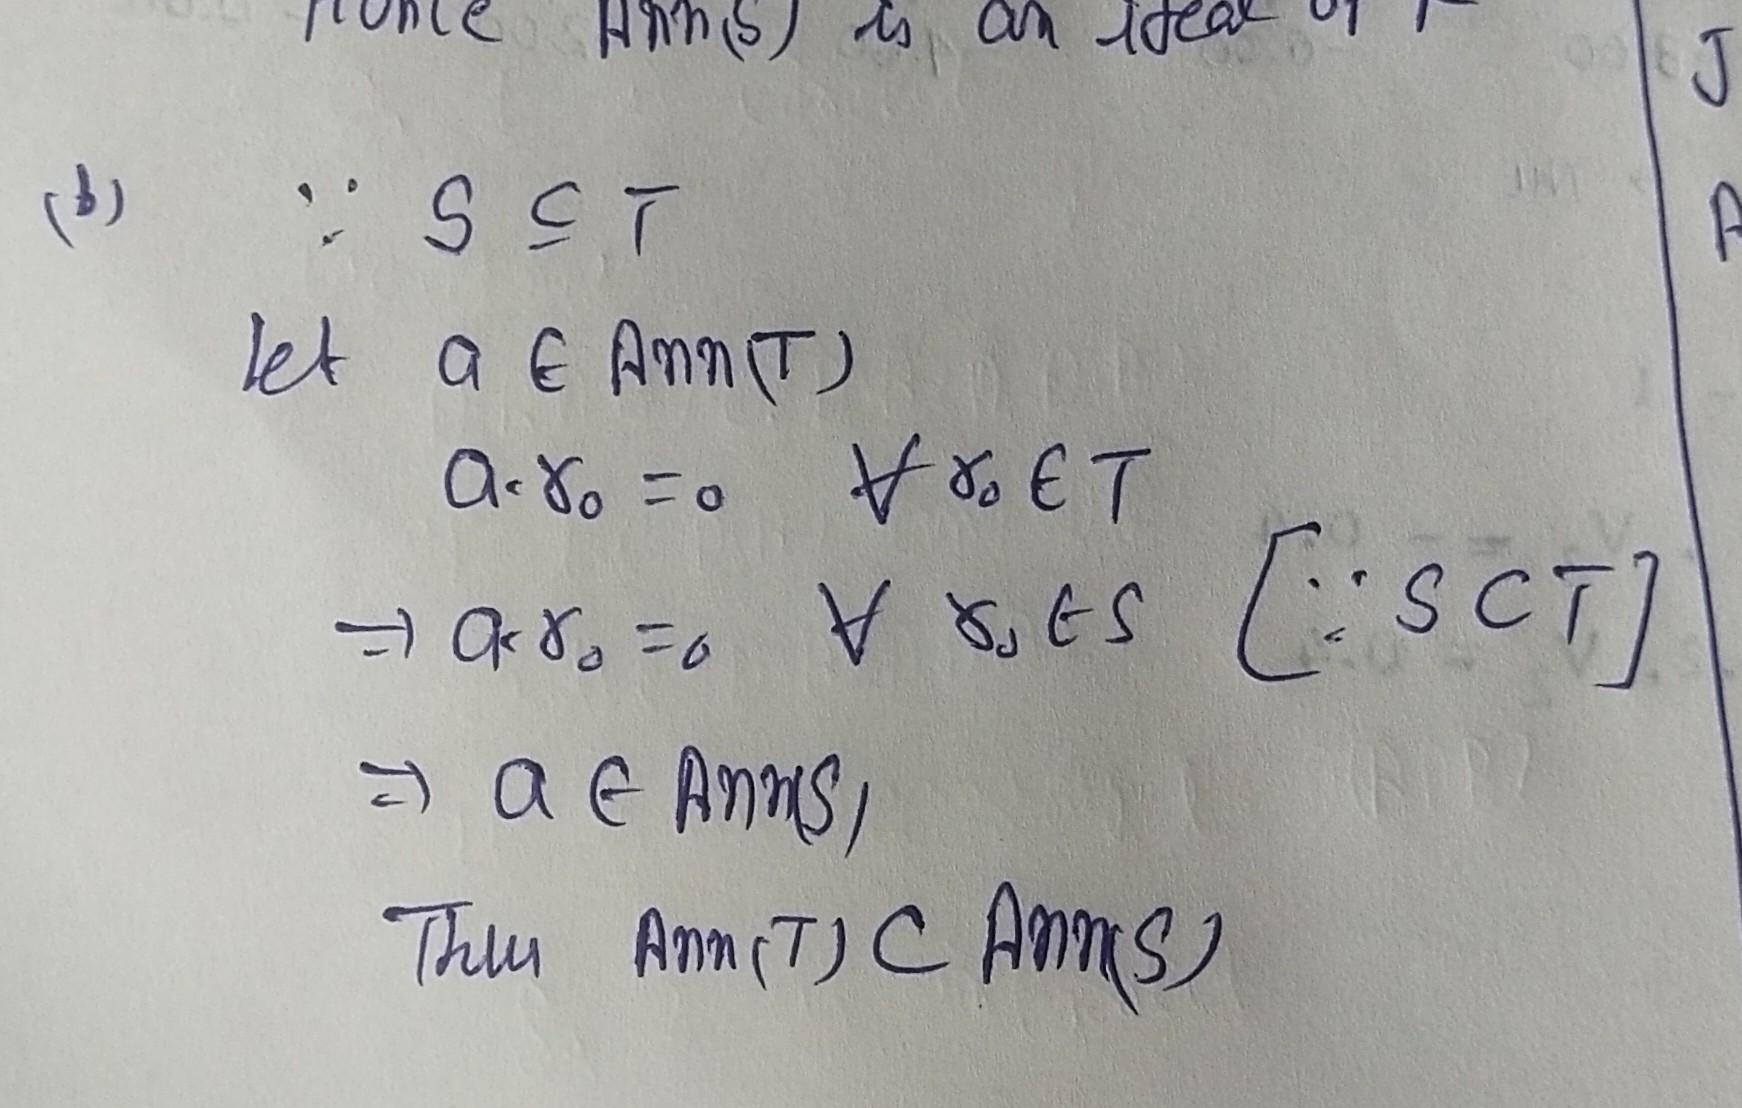 Hence Ann(S) is an ideal of
(b) ∵ S ⊆ T
let a ∈ Ann(T)
a·r₀ = 0 ∀ r₀ ∈ T
⇒ a·r₀ = 0 ∀ r₀ ∈ S [∵ S ⊂ T]
⇒ a ∈ Ann(S)
Thus Ann(T) ⊂ Ann(S)
J
A